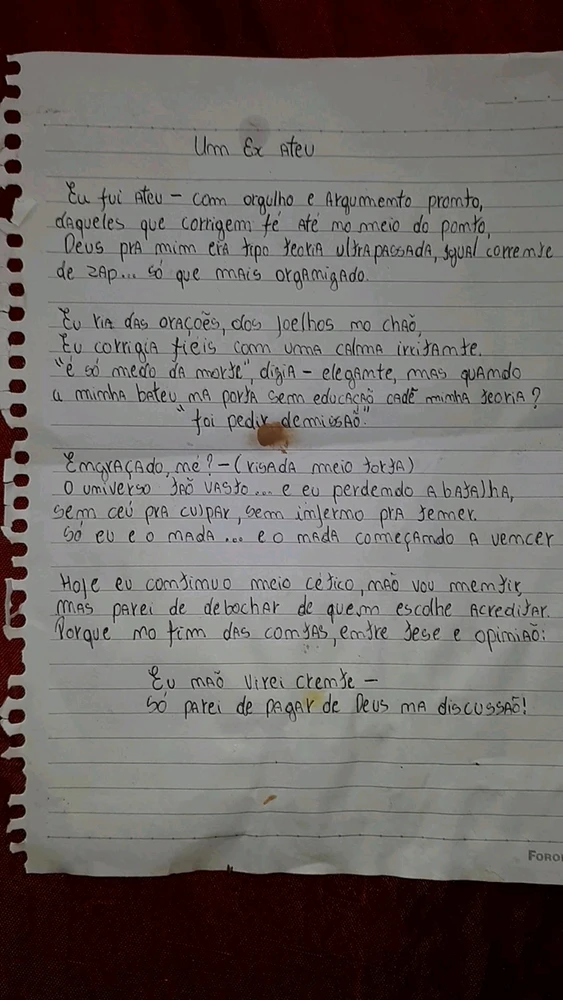 Um Ex Ateu
Eu fui Ateu - com orgulho e Argumento pronto,
daqueles que corrigem fé Até no meio do ponto,
Deus prA mim erA tipo teoriA ultrApAssAdA, Igual corrente
de zAp... só que mais organizado.
Eu ria dAs orAções, dos Joelhos no chÃo,
Eu corrigia fiéis com uma cAlma irritAnte.
"é só medo dA morte", dizia - elegAnte, mAs quAndo
a minhA bateu nA portA sem educAçÃo cadê minha teoria?
"foi pedir demissÃo."
EngrAçAdo, né? - (risAdA meio tortA)
O universo tÃo vAsto... e eu perdendo A bAtAlhA,
sem céu prA culpAr, sem inferno prA temer.
Só eu e o nAdA... e o nAdA começAndo A vencer
Hoje eu continuo meio cético, nÃo vou mentir,
mAs pArei de debochar de quem escolhe Acreditar.
Porque no fim dAs contAs, entre tese e opiniÃo:
Eu nÃo virei crente -
Só pArei de pAgAr de Deus nA discussÃo!